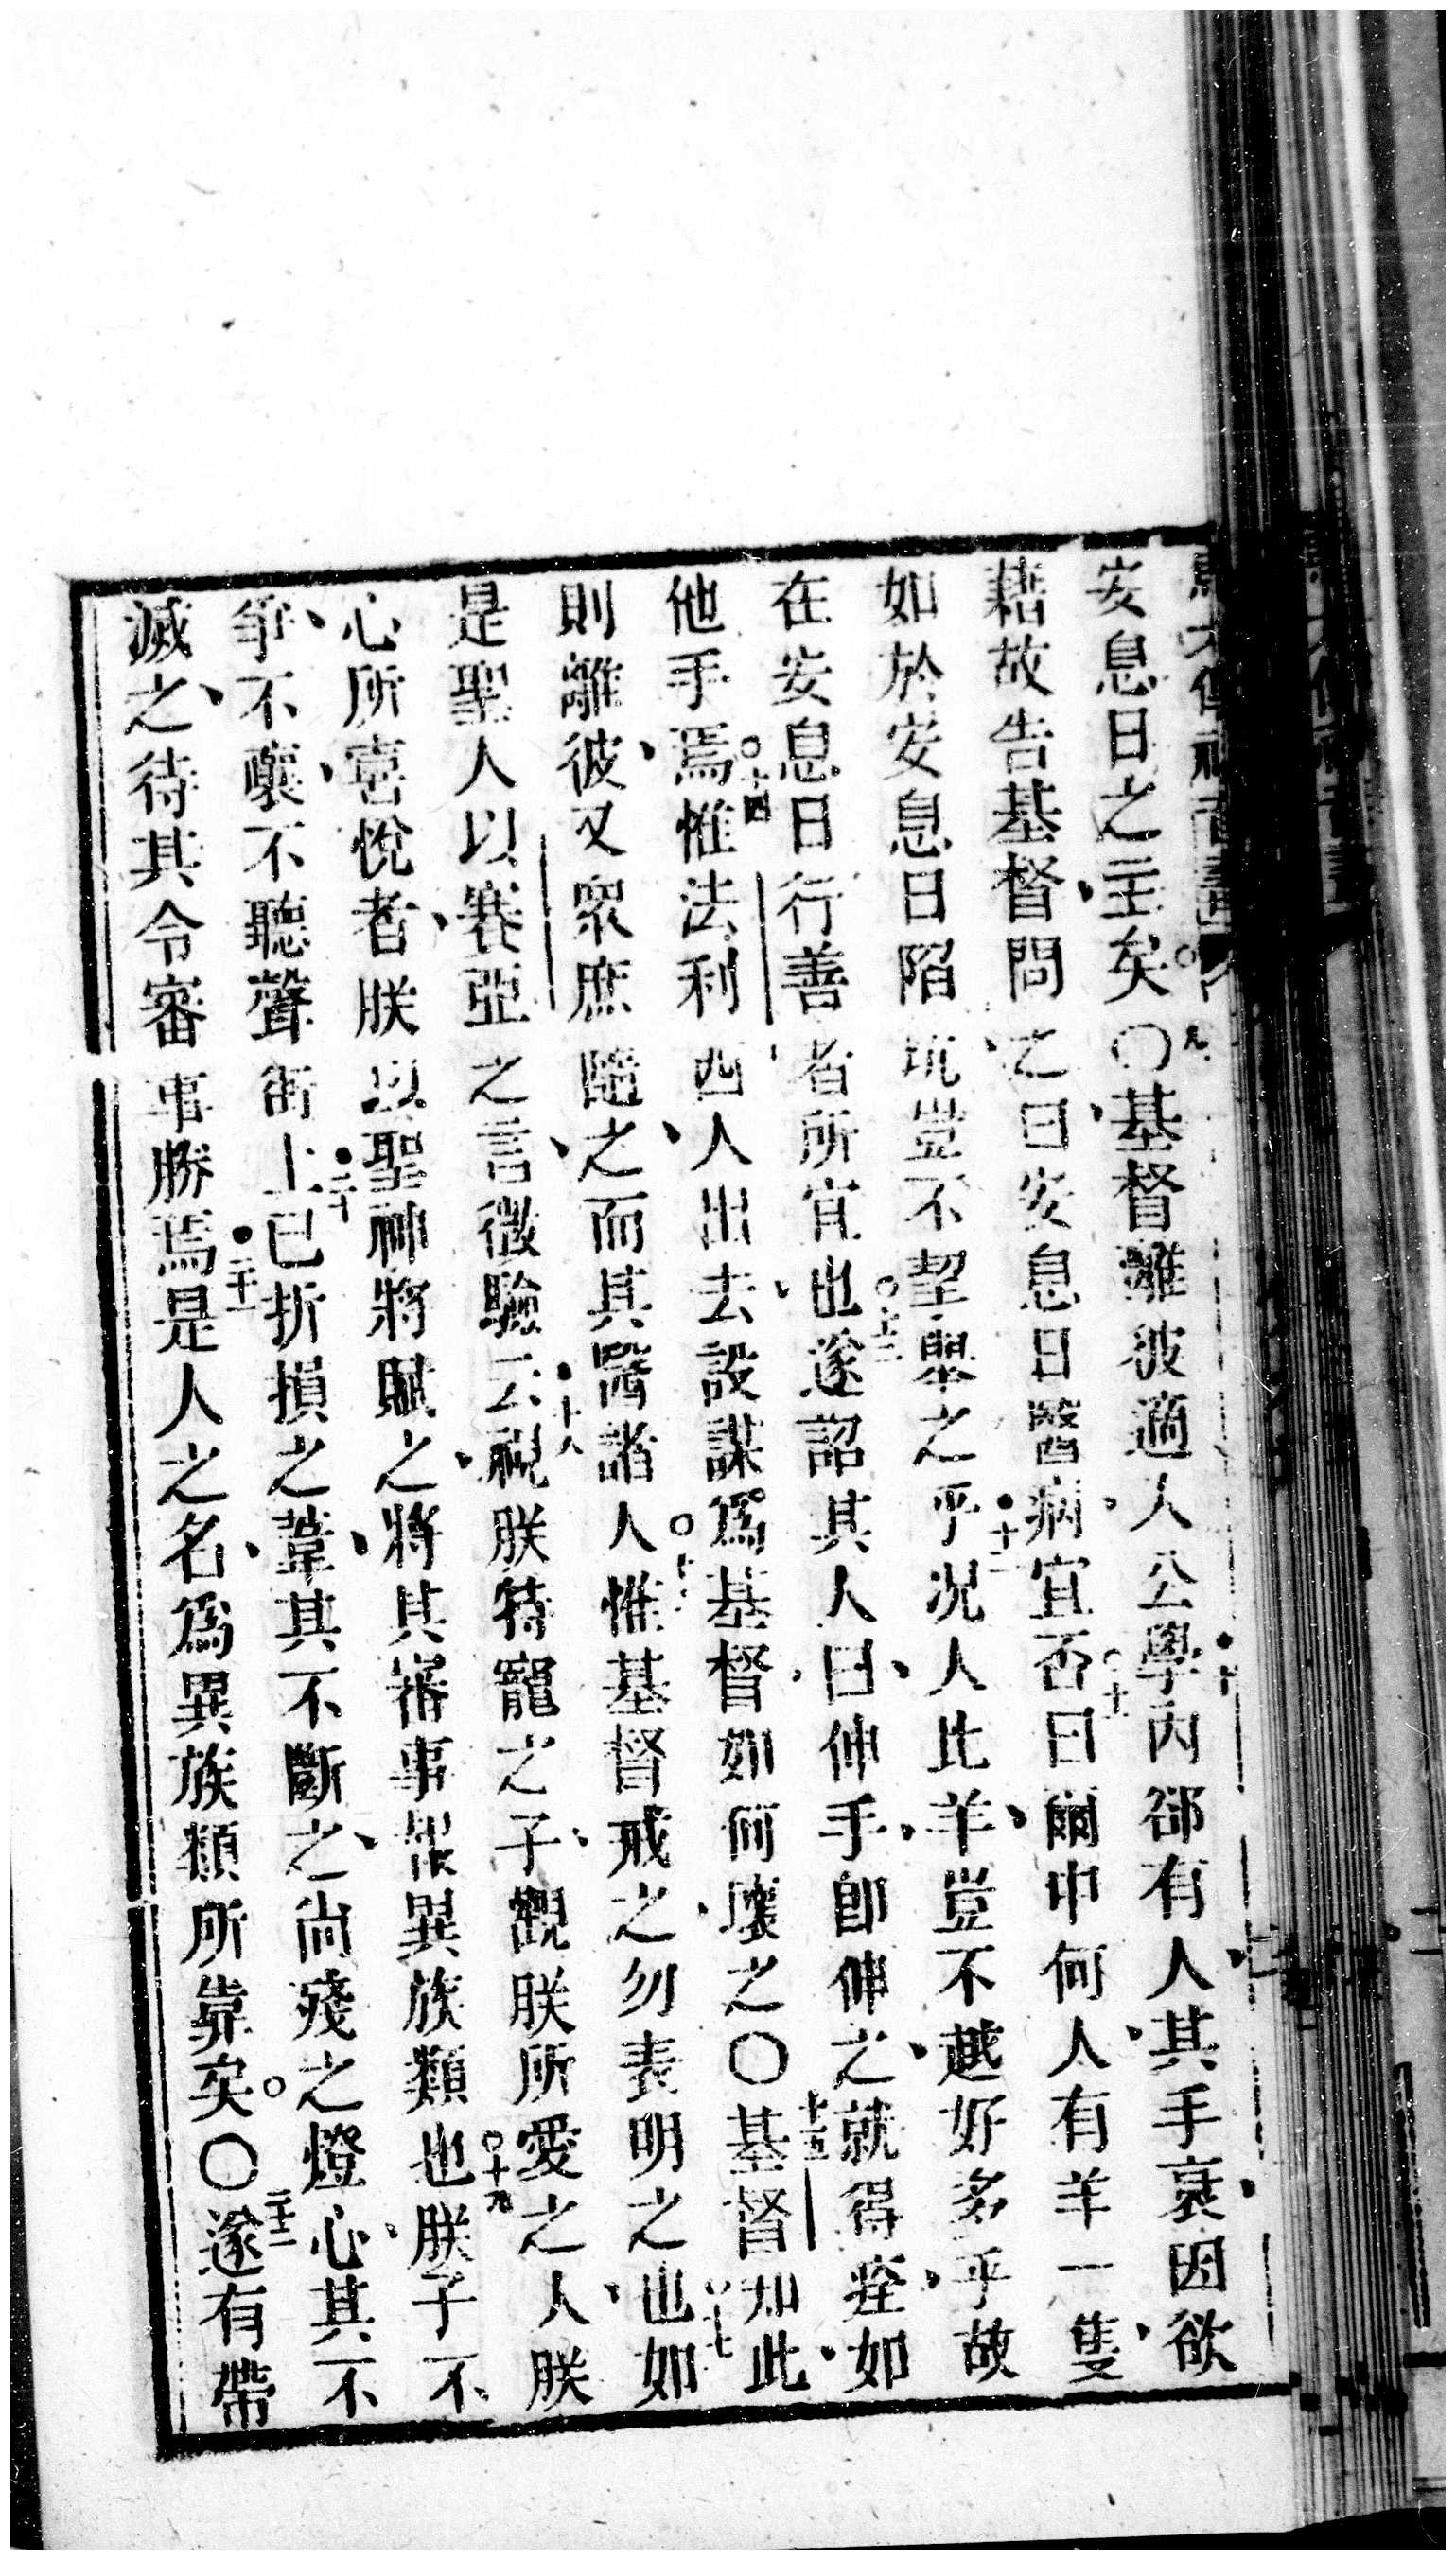 安息日之主矣。〇九基督離彼適人公學內十郤有人、其手衰、因欲
藉故告基督、問之曰、安息日醫病、宜否。十一曰、爾中何人、有羊一隻、
如於安息日陷坑、豈不挈舉之乎。十二況人比羊、豈不越好多乎、故
在安息日行善者、所宜也。十三遂詔其人曰、伸手、卽伸之、就得痊、如
他手焉。十四惟法利西人出去、設謀爲基督、如何壞之。〇十五基督知此、
則離彼、又衆庶隨之、而其醫諸人。十六惟基督戒之、勿表明之也。十七如
是聖人以賽亞之言、徵驗云、十八視朕特寵之子、觀朕所愛之人、朕
心所喜悅者、朕以聖神將賦之、將其審事報異族類也。十九朕子不、
爭、不讓、不聽聲街上。二十已折損之葦、其不斷之、尚殘之燈心、其不
滅之、待其令審事勝焉。二十一是人之名、爲異族類所靠矣。〇二十二遂有帶